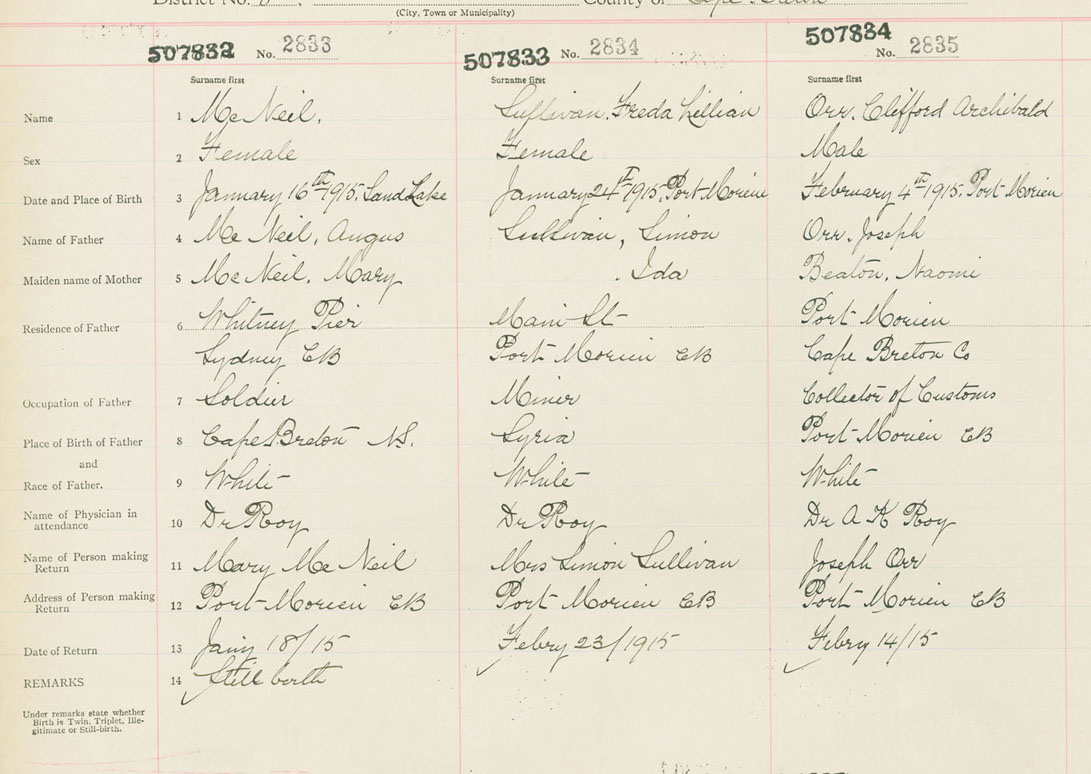 District No. 8 County of Cape Breton
(City, Town or Municipality)
507832 No. 2833 507833 No. 2834 507834 No. 2835
Surname first Surname first Surname first
Name 1 McNeil, Sullivan. Freda Lillian Orr. Clifford Archibald
Sex 2 Female Female Male
Date and Place of Birth 3 January 16th 1915. Sand Lake January 24th 1915. Port Morien February 4th 1915. Port Morien
Name of Father 4 McNeil, Angus Sullivan, Simon Orr. Joseph
Maiden name of Mother 5 McNeil, Mary . Ida Beaton, Naomi
Residence of Father 6 Whitney Pier Main St Port Morien
Sydney CB Port Morien CB Cape Breton Co
Occupation of Father 7 Soldier Miner Collector of Customs
Place of Birth of Father 8 Cape Breton NS. Syria Port Morien CB
and
Race of Father. 9 White White White
Name of Physician in attendance 10 Dr Roy Dr Roy Dr A K Roy
Name of Person making Return 11 Mary McNeil Mrs Simon Sullivan Joseph Orr
Address of Person making Return 12 Port Morien CB Port Morien CB Port Morien CB
Date of Return 13 Jany 18/15 Febry 23/1915 Febry 14/15
REMARKS 14 Still birth
Under remarks state whether
Birth is Twin, Triplet, Ille-
gitimate or Still-birth.